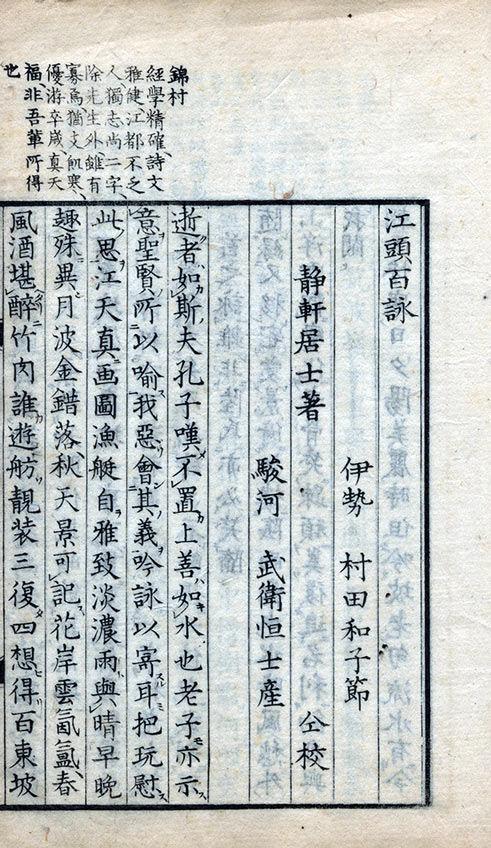 錦村
經學精確詩文
雅健江都不乏
人獨志尚二字
除先生外雖有
寡焉猶支飢寒
優游卒歳真天
福非吾輩所得
也
江頭百詠
伊勢 村田和子節
静軒居士著 仝校
駿河 武衛恒士産
逝者如斯夫孔子嘆不置上善如水也老子亦示
意聖賢所以喻我惡會其義吟詠以寄耳把玩慰
此思江天真画圖漁艇自雅致淡濃雨與晴早晚
趣殊異月波金錯落秋天景可記花岸雲氤氳春
風酒堪醉竹肉誰遊舫靚装三復四想得百東坡